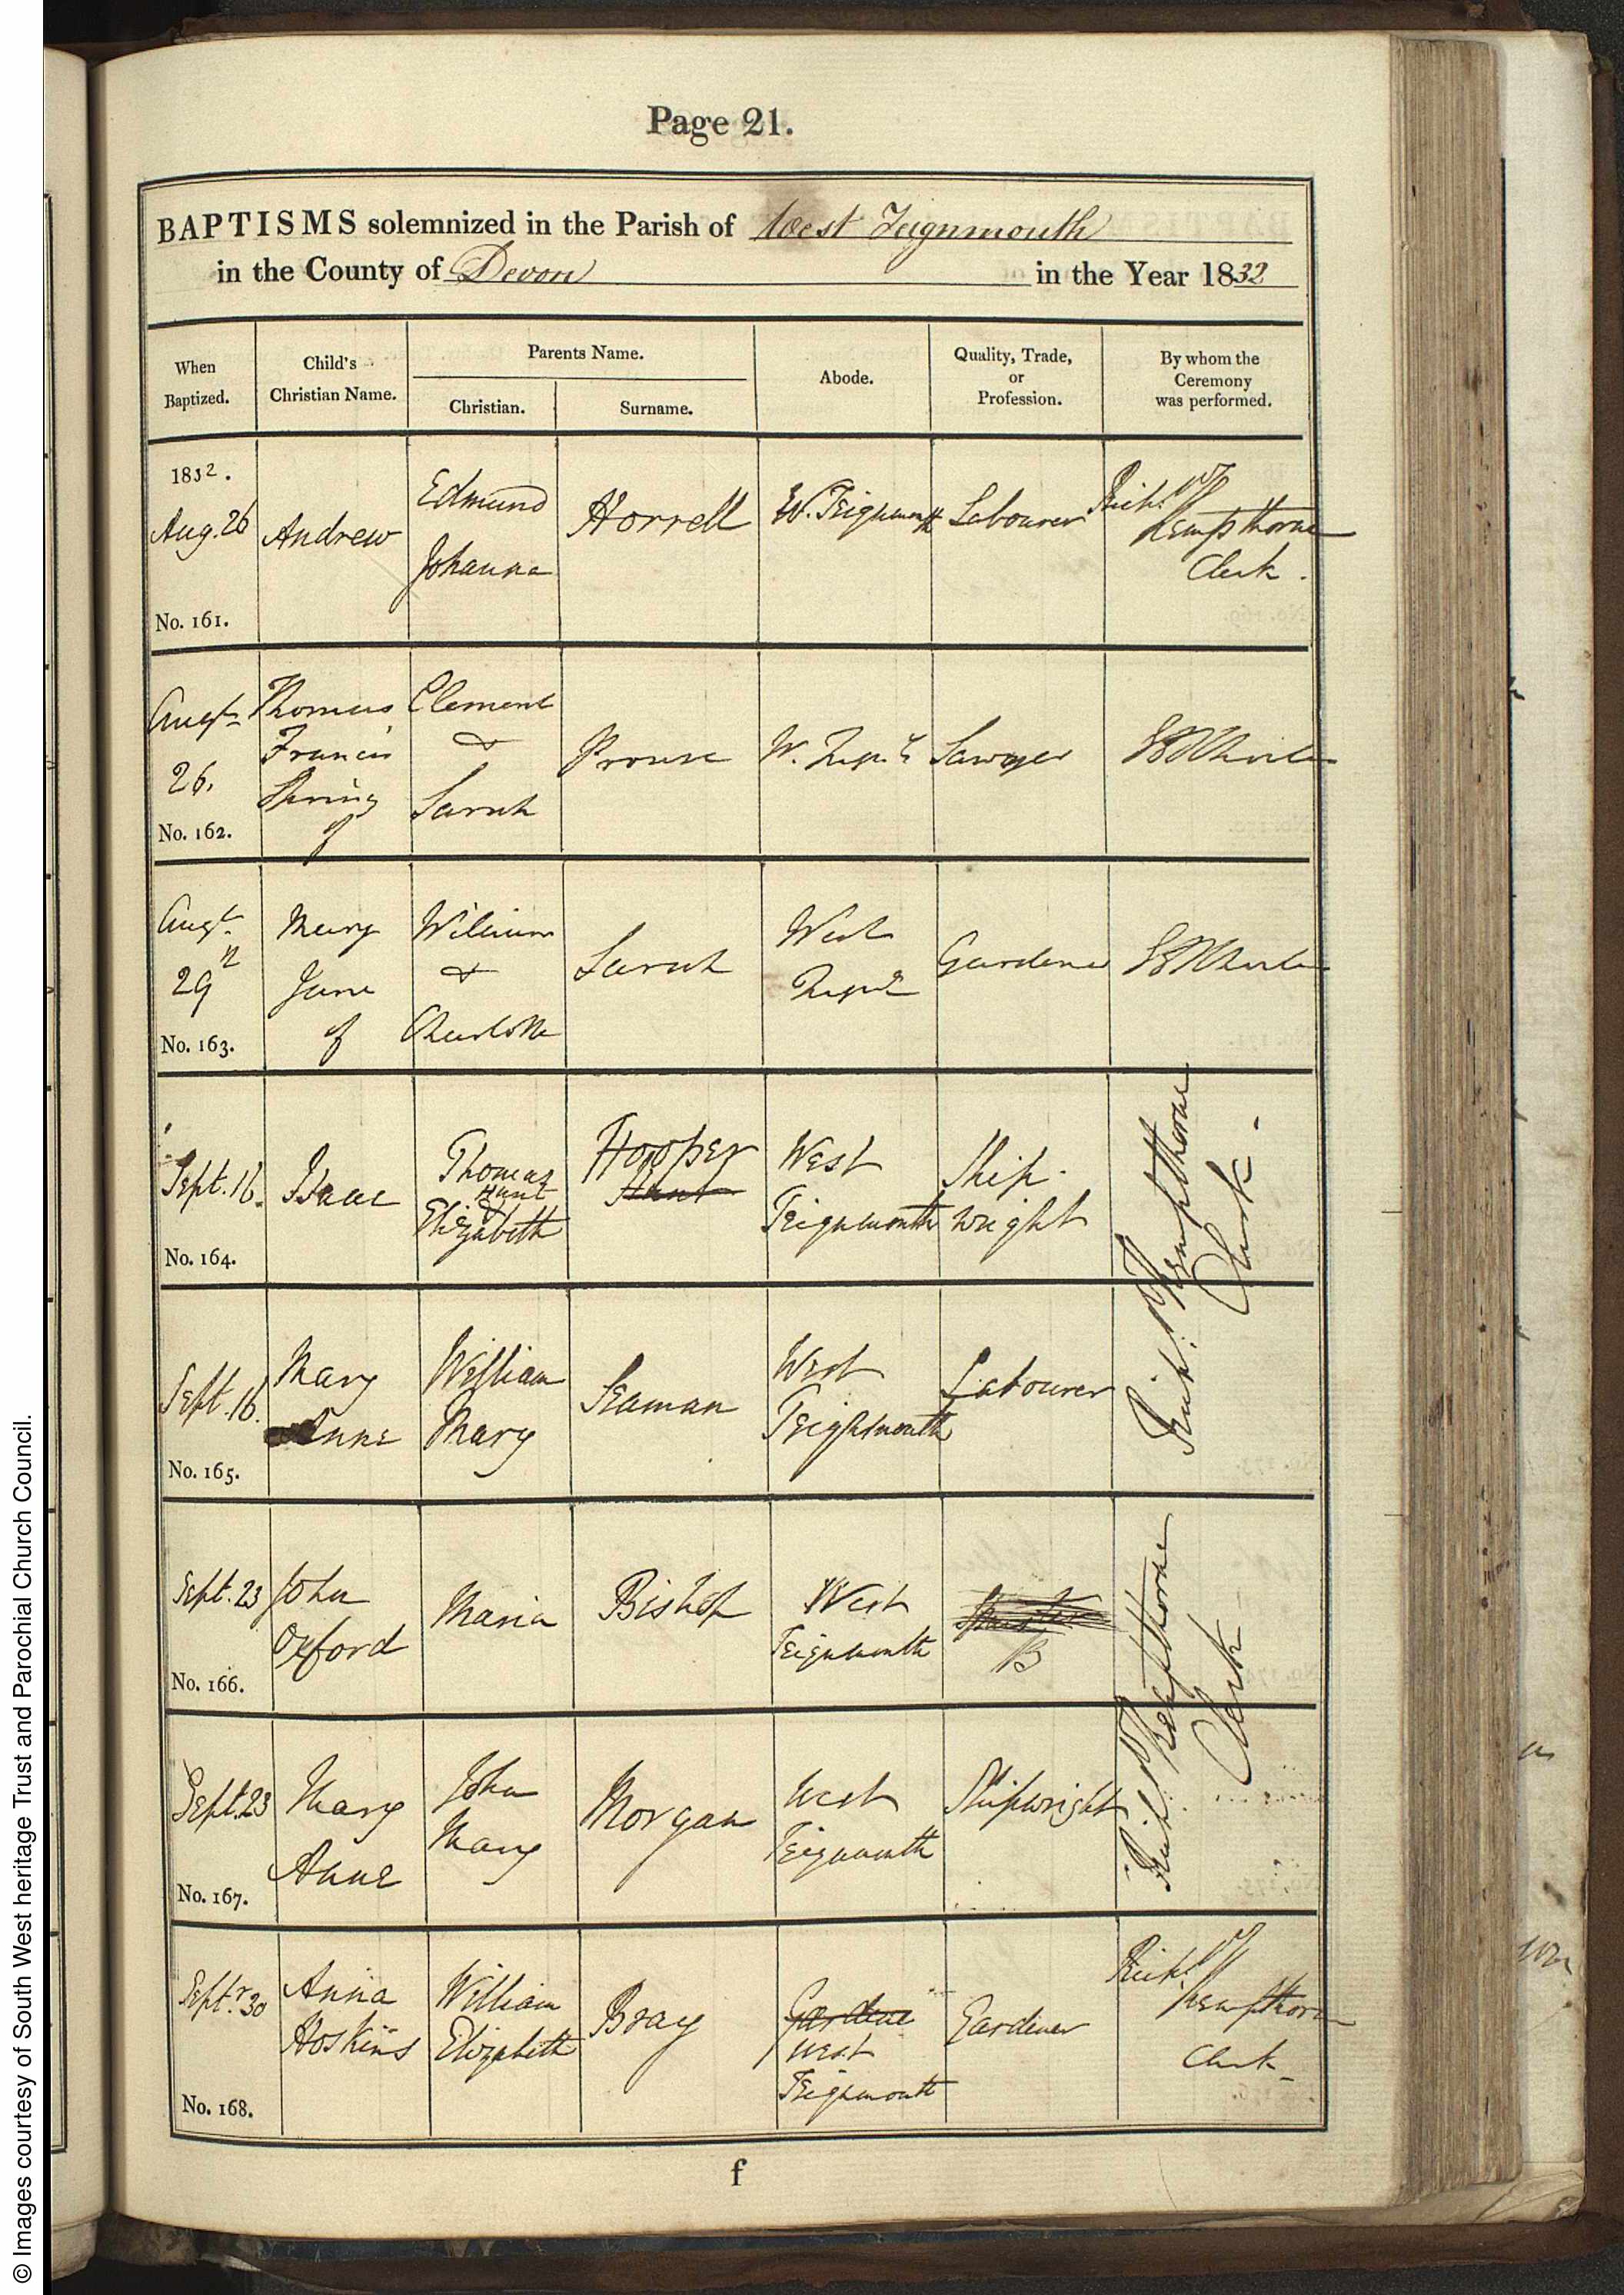 Page 21.
BAPTISMS solemnized in the Parish of West Teignmouth
in the County of Devon in the Year 1832
When Baptized.
Child's Christian Name.
Parents Name.
Christian.
Surname.
Abode.
Quality, Trade, or Profession.
By whom the Ceremony was performed.
1832.
Aug. 26
No. 161.
Andrew
Edmund
Johanna
Horrell
W. Teignmouth
Labourer
Richd
Kempthorne
Clerk.
Augt
26.
No. 162.
Thomas
Francis
of
Clement
&
Sarah
Prouse
W. Teignth
Sawyer
Augt
29
No. 163.
Mary
Jane
of
William
&
Charlotte
Sarah
West
Teignth
Gardener
Sept. 16.
No. 164.
Isaac
Thomas
Hunt
&
Elizabeth
Hooper
Hunt
West
Teignmouth
Ship
wright
Richd Kempthorne
Clerk.
Sept. 16.
No. 165.
Mary
Anne
William
Mary
Seaman
West
Teignmouth
Labourer
Sept. 23
No. 166.
John
Oxford
Maria
Bishop
West
Teignmouth
B
Richd Kempthorne
Clerk
Sept. 23
No. 167.
Mary
Anne
John
Mary
Morgan
West
Teignmouth
Shipwright
Septr. 30
No. 168.
Anna
Hoskins
William
Elizabeth
Bray
Gardene
West
Teignmouth
Gardener
Richd
Kempthorne
Clerk
f
© Images courtesy of South West heritage Trust and Parochial Church Council.